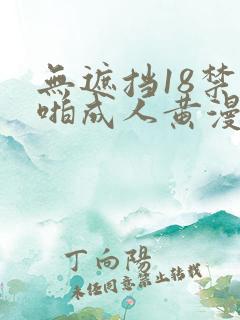 無遮挡18禁
啪成人黄漫
丁向陽
未经同意禁止转载